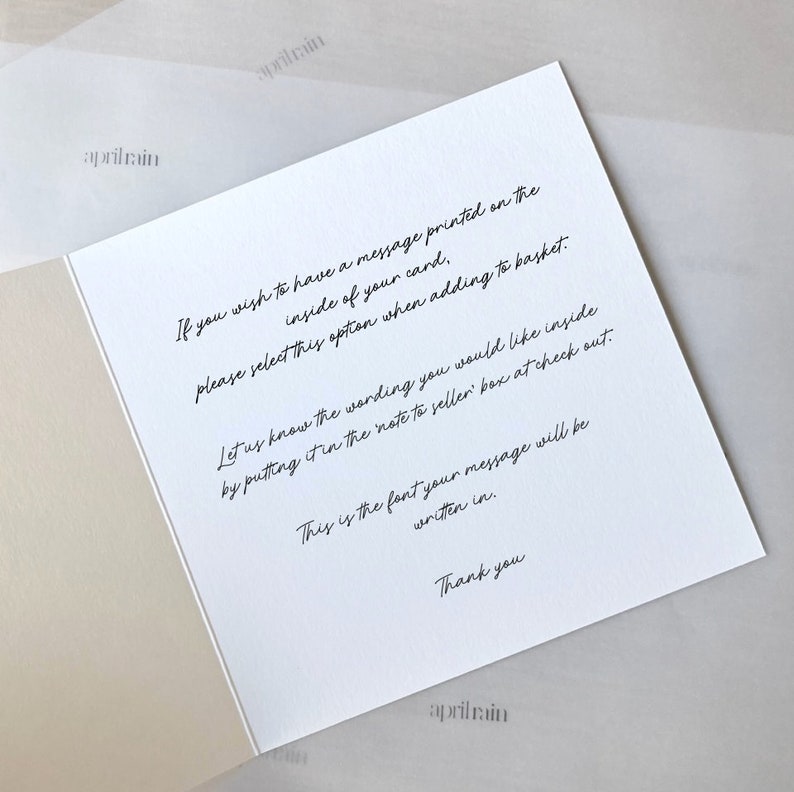 aprilrain
aprilrain
If you wish to have a message printed on the
inside of your card,
please select this option when adding to basket.
Let us know the wording you would like inside
by putting it in the 'note to seller' box at check out.
This is the font your message will be
written in.
Thank you
aprilrain